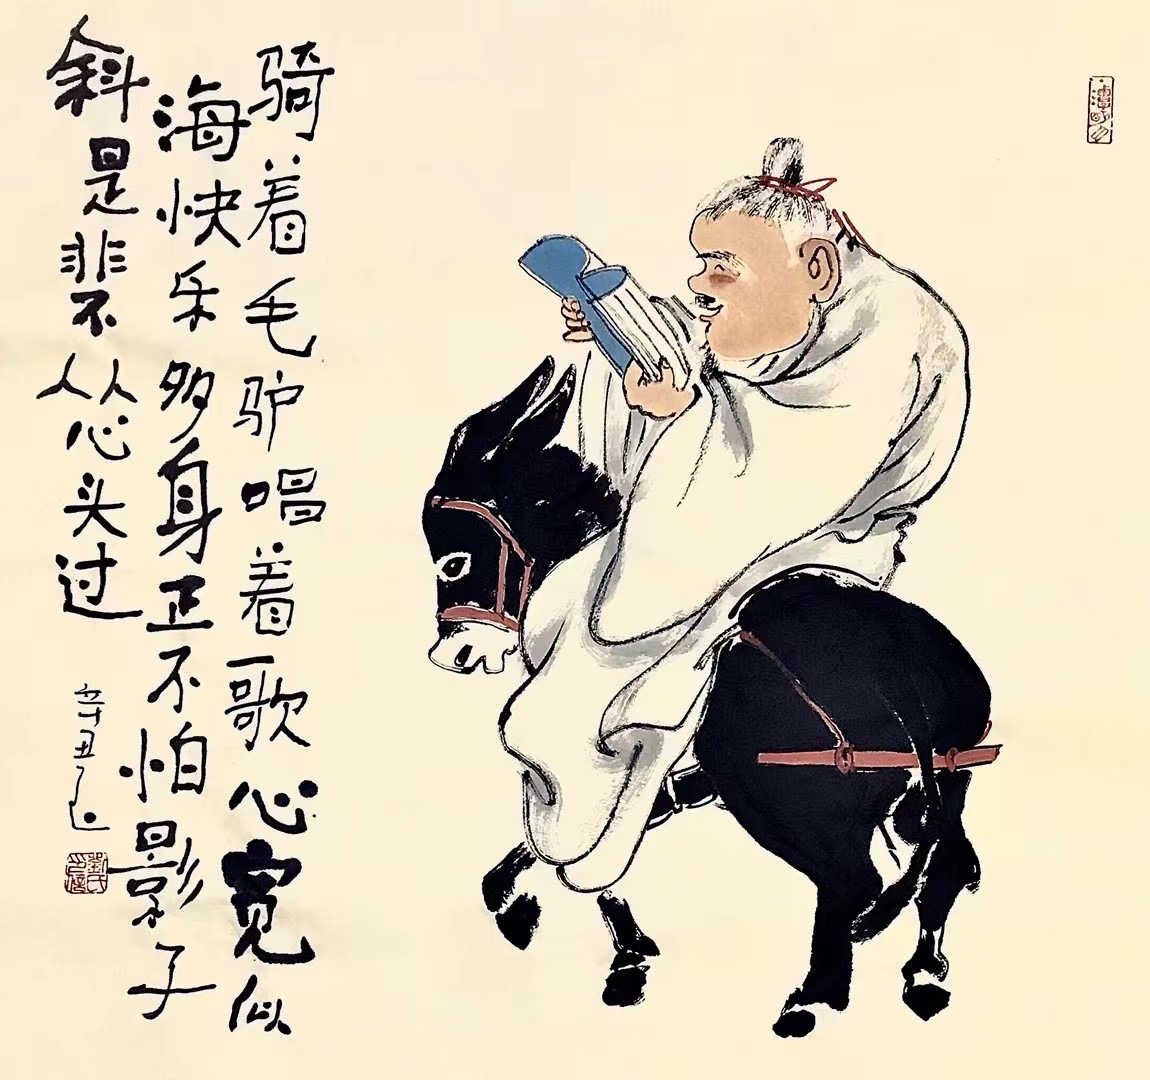 骑着毛驴唱着歌心宽似
海快乐多身正不怕影子
斜是非不从心头过
辛丑